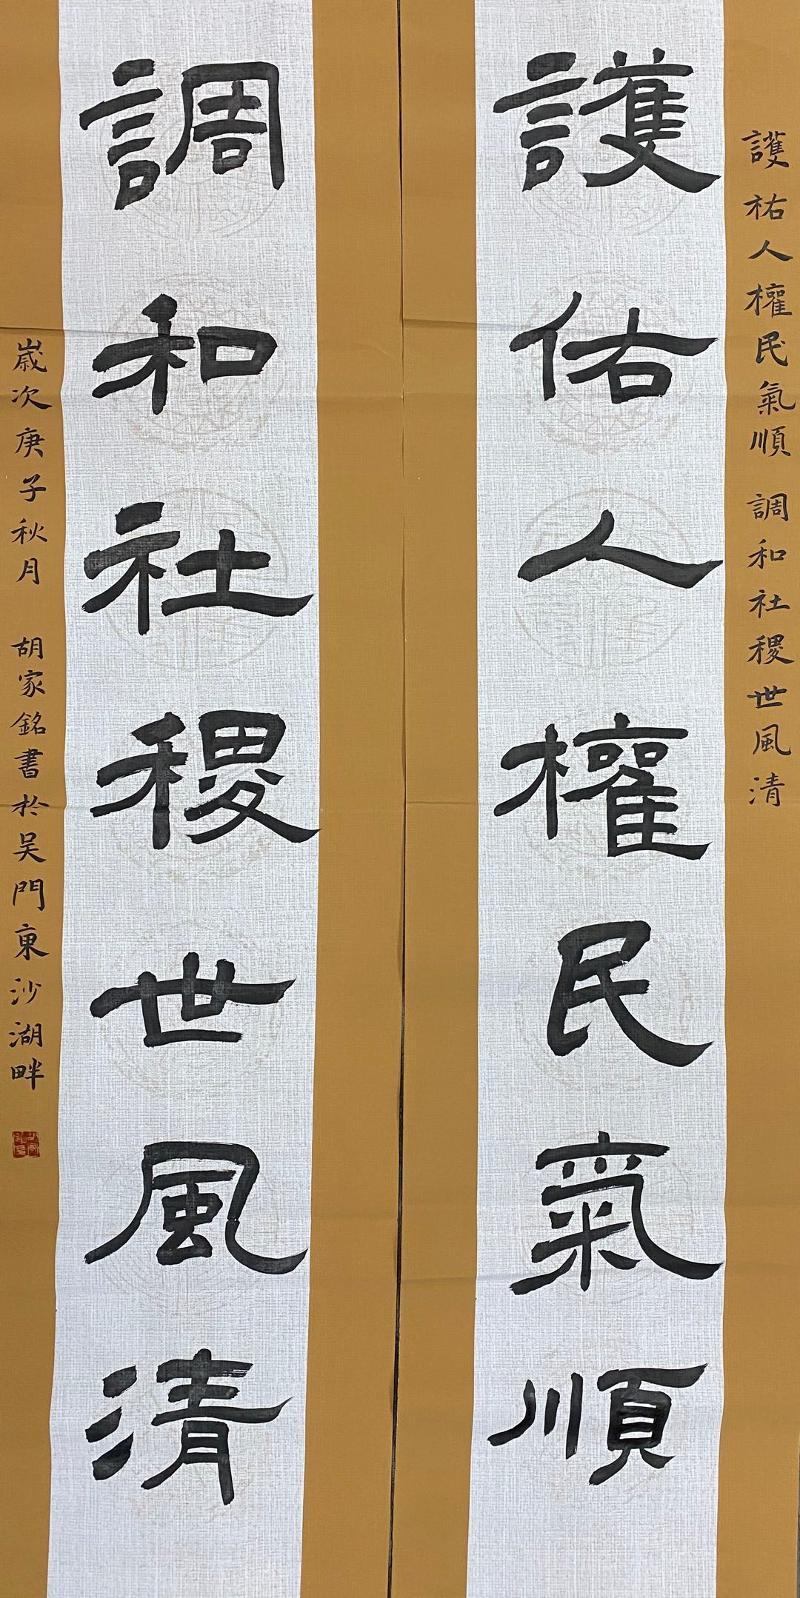 護祐人權民氣順 調和社稷世風清
護佑人權民氣順
調和社稷世風清
歲次庚子秋月 胡家銘書於吴門東沙湖畔